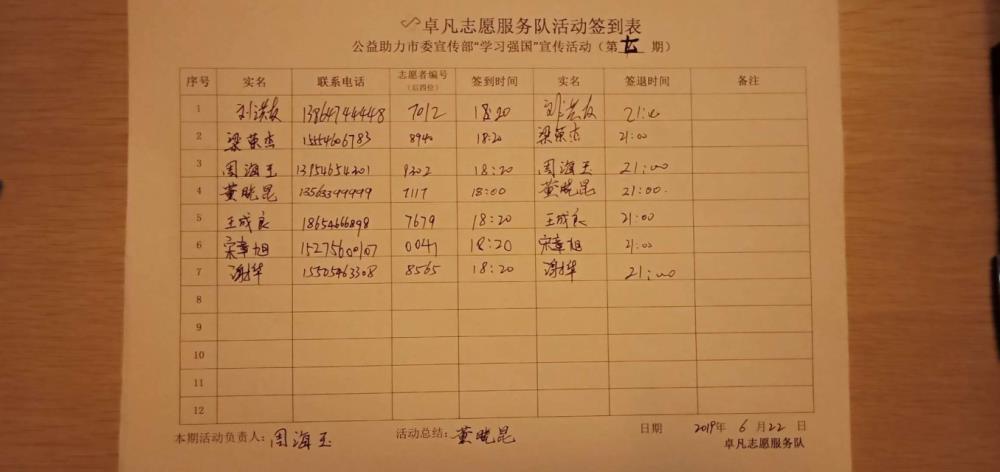 卓凡志愿服务队活动签到表
公益助力市委宣传部“学习强国”宣传活动（第 期）
序号 实名 联系电话 志愿者编号（后四位） 签到时间 实名 签退时间 备注
1 刘洪友 13864744448 7012 18:20 刘洪友 21:00
2 梁荣杰 15554606783 8940 18:20 梁荣杰 21:00
3 周海玉 13954654201 9202 18:20 周海玉 21:00
4 黄晓昆 13563399999 7117 18:00 黄晓昆 21:00.
5 王成良 18654666898 7679 18:20 王成良 21:00
6 宋章旭 15275600107 0047 18:20 宋章旭 21:00
7 谢华 15505463308 8565 18:20 谢华 21:00
8
9
10
11
12
本期活动负责人：周海玉 活动总结：黄晓昆 日期 2019年 6 月 22 日
卓凡志愿服务队